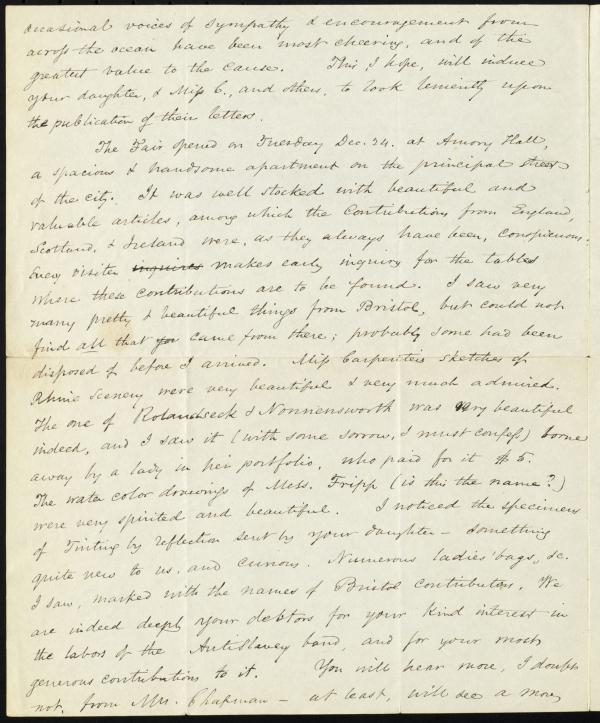 occasional voices of sympathy & encouragement from
across the ocean have been most cheering, and of the
greatest value to the cause. This, I hope, will induce
your daughter, & Miss C., and others, to look leniently upon
the publication of their letters.
The Fair opened on Tuesday Dec. 24. at Amory Hall,
a spacious & handsome apartment on the principal street
of the city. It was well stocked with beautiful and
valuable articles, among which the Contributions from England,
Scotland, & Ireland were, as they always have been, conspicuous.
Every visiter inquires makes early inquiry for the tables
where these contributions are to be found. I saw very
many pretty & beautiful things from Bristol, but could not
find all that you came from there; probably some had been
disposed of before I arrived. Miss Carpenter's sketches of
Rhine Scenery were very beautiful & very much admired.
The one of Rolandseck & Nonnensworth was very beautiful
indeed, and I saw it (with some sorrow, I must confess) borne
away by a lady in her portfolio, who paid for it $5.
The water color drawings of Mess. Fripp (is this the name?)
were very spirited and beautiful. I noticed the specimens
of Tinting by reflection sent by your daughter – something
quite new to us, and curious. Numerous ladies' bags, &c.
I saw, marked with the names of Bristol contributors. We
are indeed deeply your debtors for your kind interest in
the labors of the AntiSlavery band, and for your most
generous contributions to it. You will hear more, I doubt
not, from Mrs. Chapman – at least, will see a more